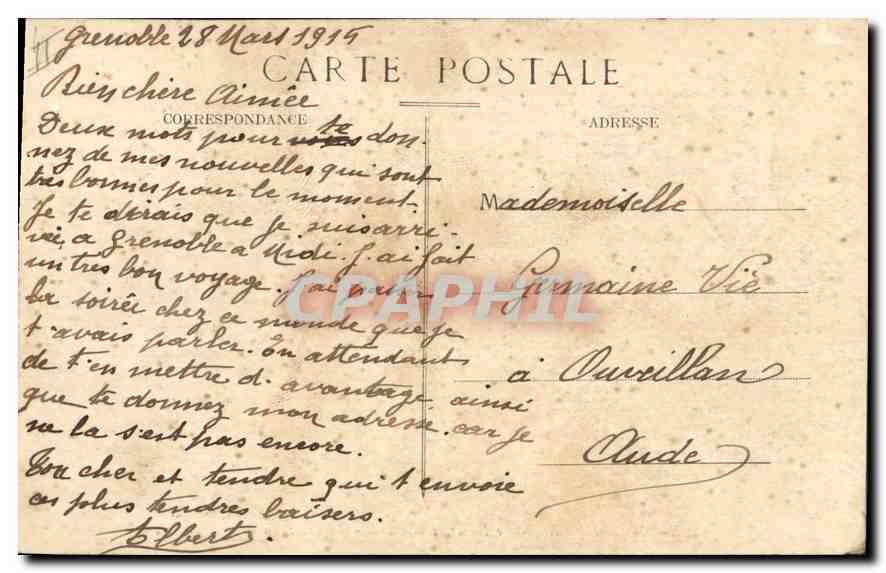 Grenoble 28 Mars 1915
CARTE POSTALE
Bien chère Aimée
CORRESPONDANCE
Deux mots pour te don-
nez de mes nouvelles qui sont
très bonnes pour le moment.
Je te dirais que je suis arri-
vée a Grenoble a Midi. J'ai fait
un tres bon voyage. J'ai passer
la soirée chez ce monde que je
t'avais parler. En attendant
de t'en mettre d'avantage ainsi
que te donnez mon adresse. car je
ne la s'est pas encore.
Ton cher et tendre qui t envoie
ces plus tendres baisers.
Albert
ADRESSE
Mademoiselle
Germaine Vié
à Ouveillan
Aude
CPAPHIL